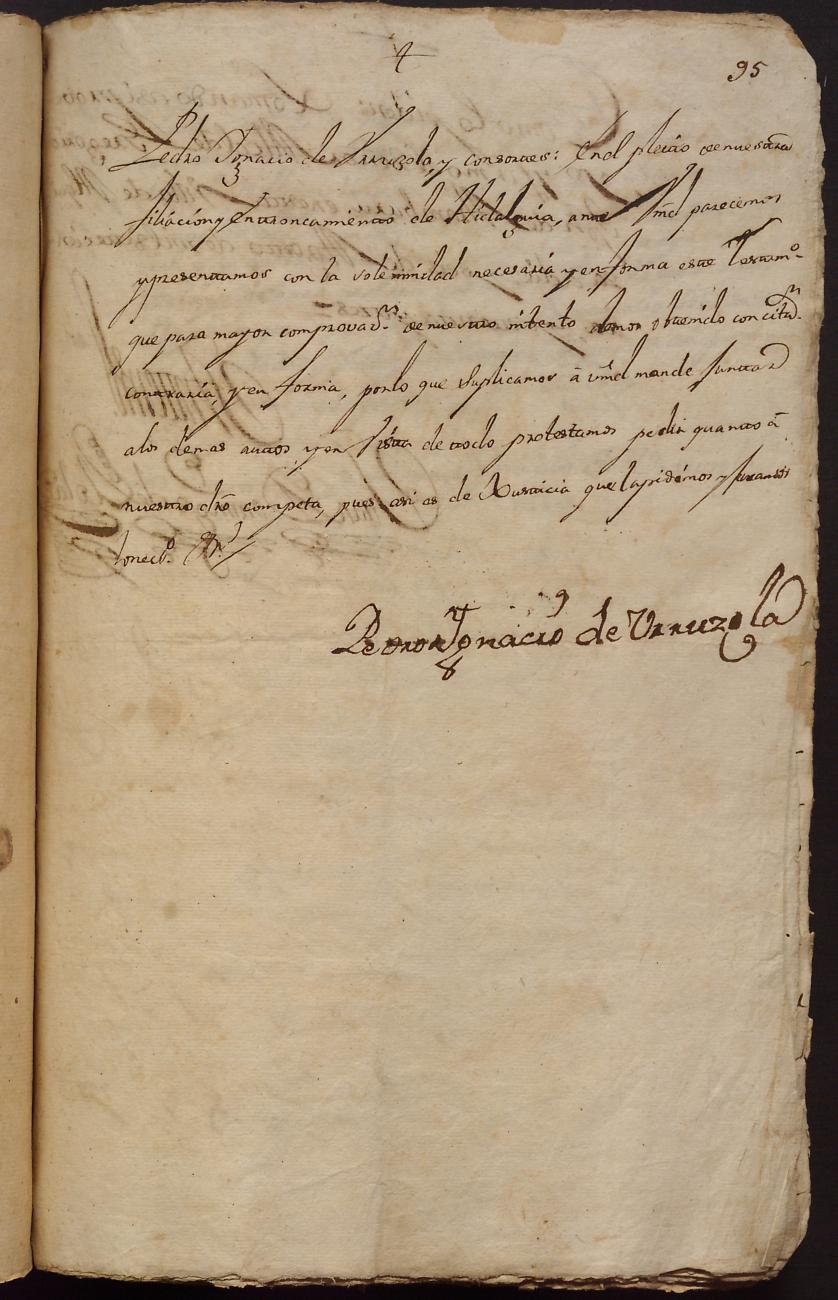 95
Pedro Ignacio de Urruzola, y consortes: En el pleito de nuestra
filiacion y Entroncamiento de Hidalguia, ante Vmd parecemos
y presentamos con la solemnidad necesaria y en forma este Testamᵒ.
que para mayor comprovaⁿ. de nuestro intento hemos obtenido con citaⁿ.
contraria, y en forma, por lo que suplicamos â Vmd mande Juntar
a los demas autos, y en Vista de todo protestamos pedir quanto â
nuestro dro competa, pues asi es de Justicia que la pidimos y Juramos
lo necᵒ. &ᵃ
Pedro Ignacio de Urruzola